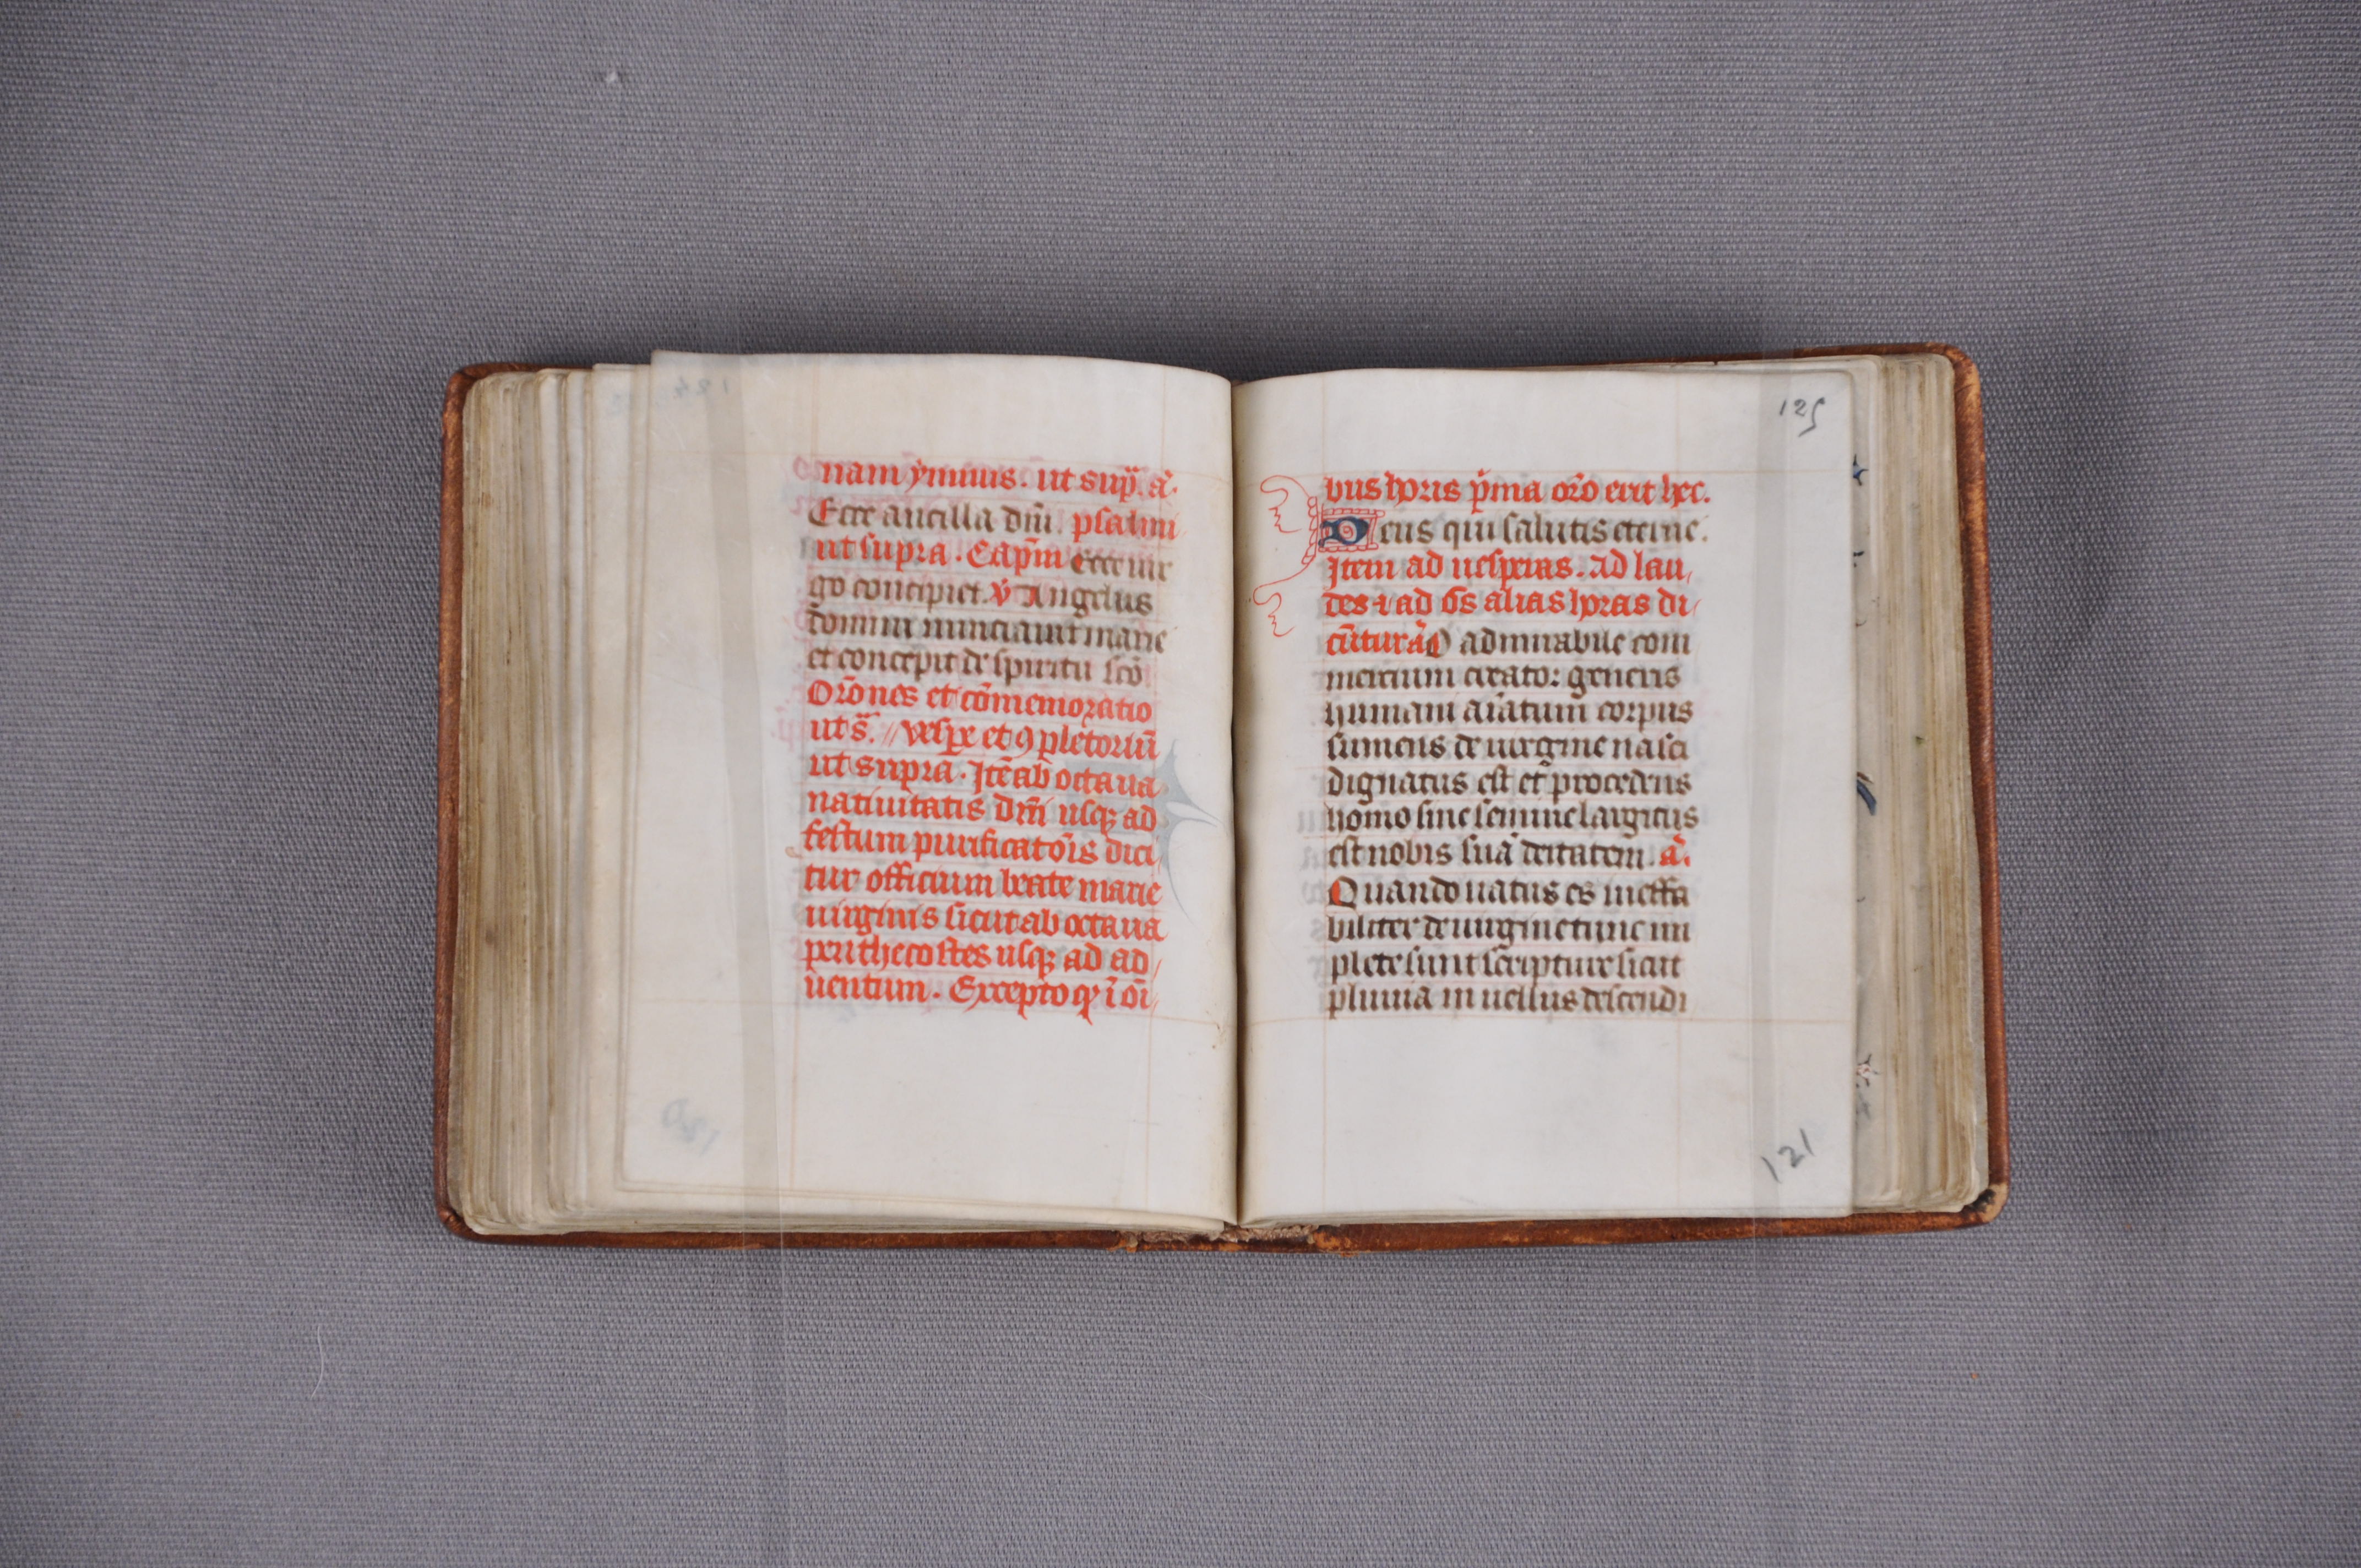 nam ymnus. ut sup̄. ā.
Ecce ancilla dn̄i. psalmi
ut supra. Cap̄m Ecce uir
go concipiet. v̄ Angelus
domini nunciauit marie
et concepit de spiritu sc̄o
Or̄ones et cōmemoratio
ut s̄. // vesp̱e et ꝯpletoriū
ut supra. Itē ab octaua
natiuitatis dn̄i usqꝫ ad
festum purificatōis dici/
tur officium beate marie
uirginis sicut ab octaua
penthecostes usqꝫ ad ad/
uentum. Excepto qꝫ ī oī/
125
bus horis p̄ma or̄o erit hec.
Deus qui salutis eterne.
Item ad uesperas. ad lau/
des ⁊ ad ōs alias horas di/
cūtur ā O admirabile com
mercium creator generis
humani aīatum corpus
sumens de uirgine nasci
dignatus est et procedens
homo sine semine largitus
est nobis suā deitatem. ā.
Quando natus es ineffa
biliter de uirgine tunc im
plete sunt scripture sicut
pluuia in uellus descendi
121